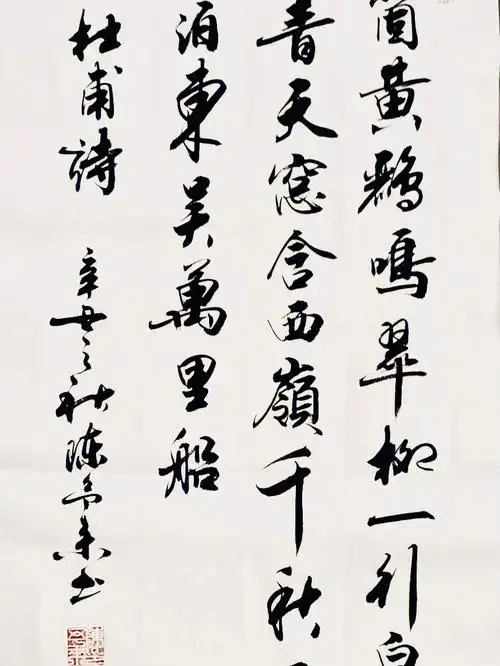 箇黃鸝鳴翠柳一行白
青天窓含西嶺千秋
泊東吳萬里船
杜甫詩 辛丑之秋陳書